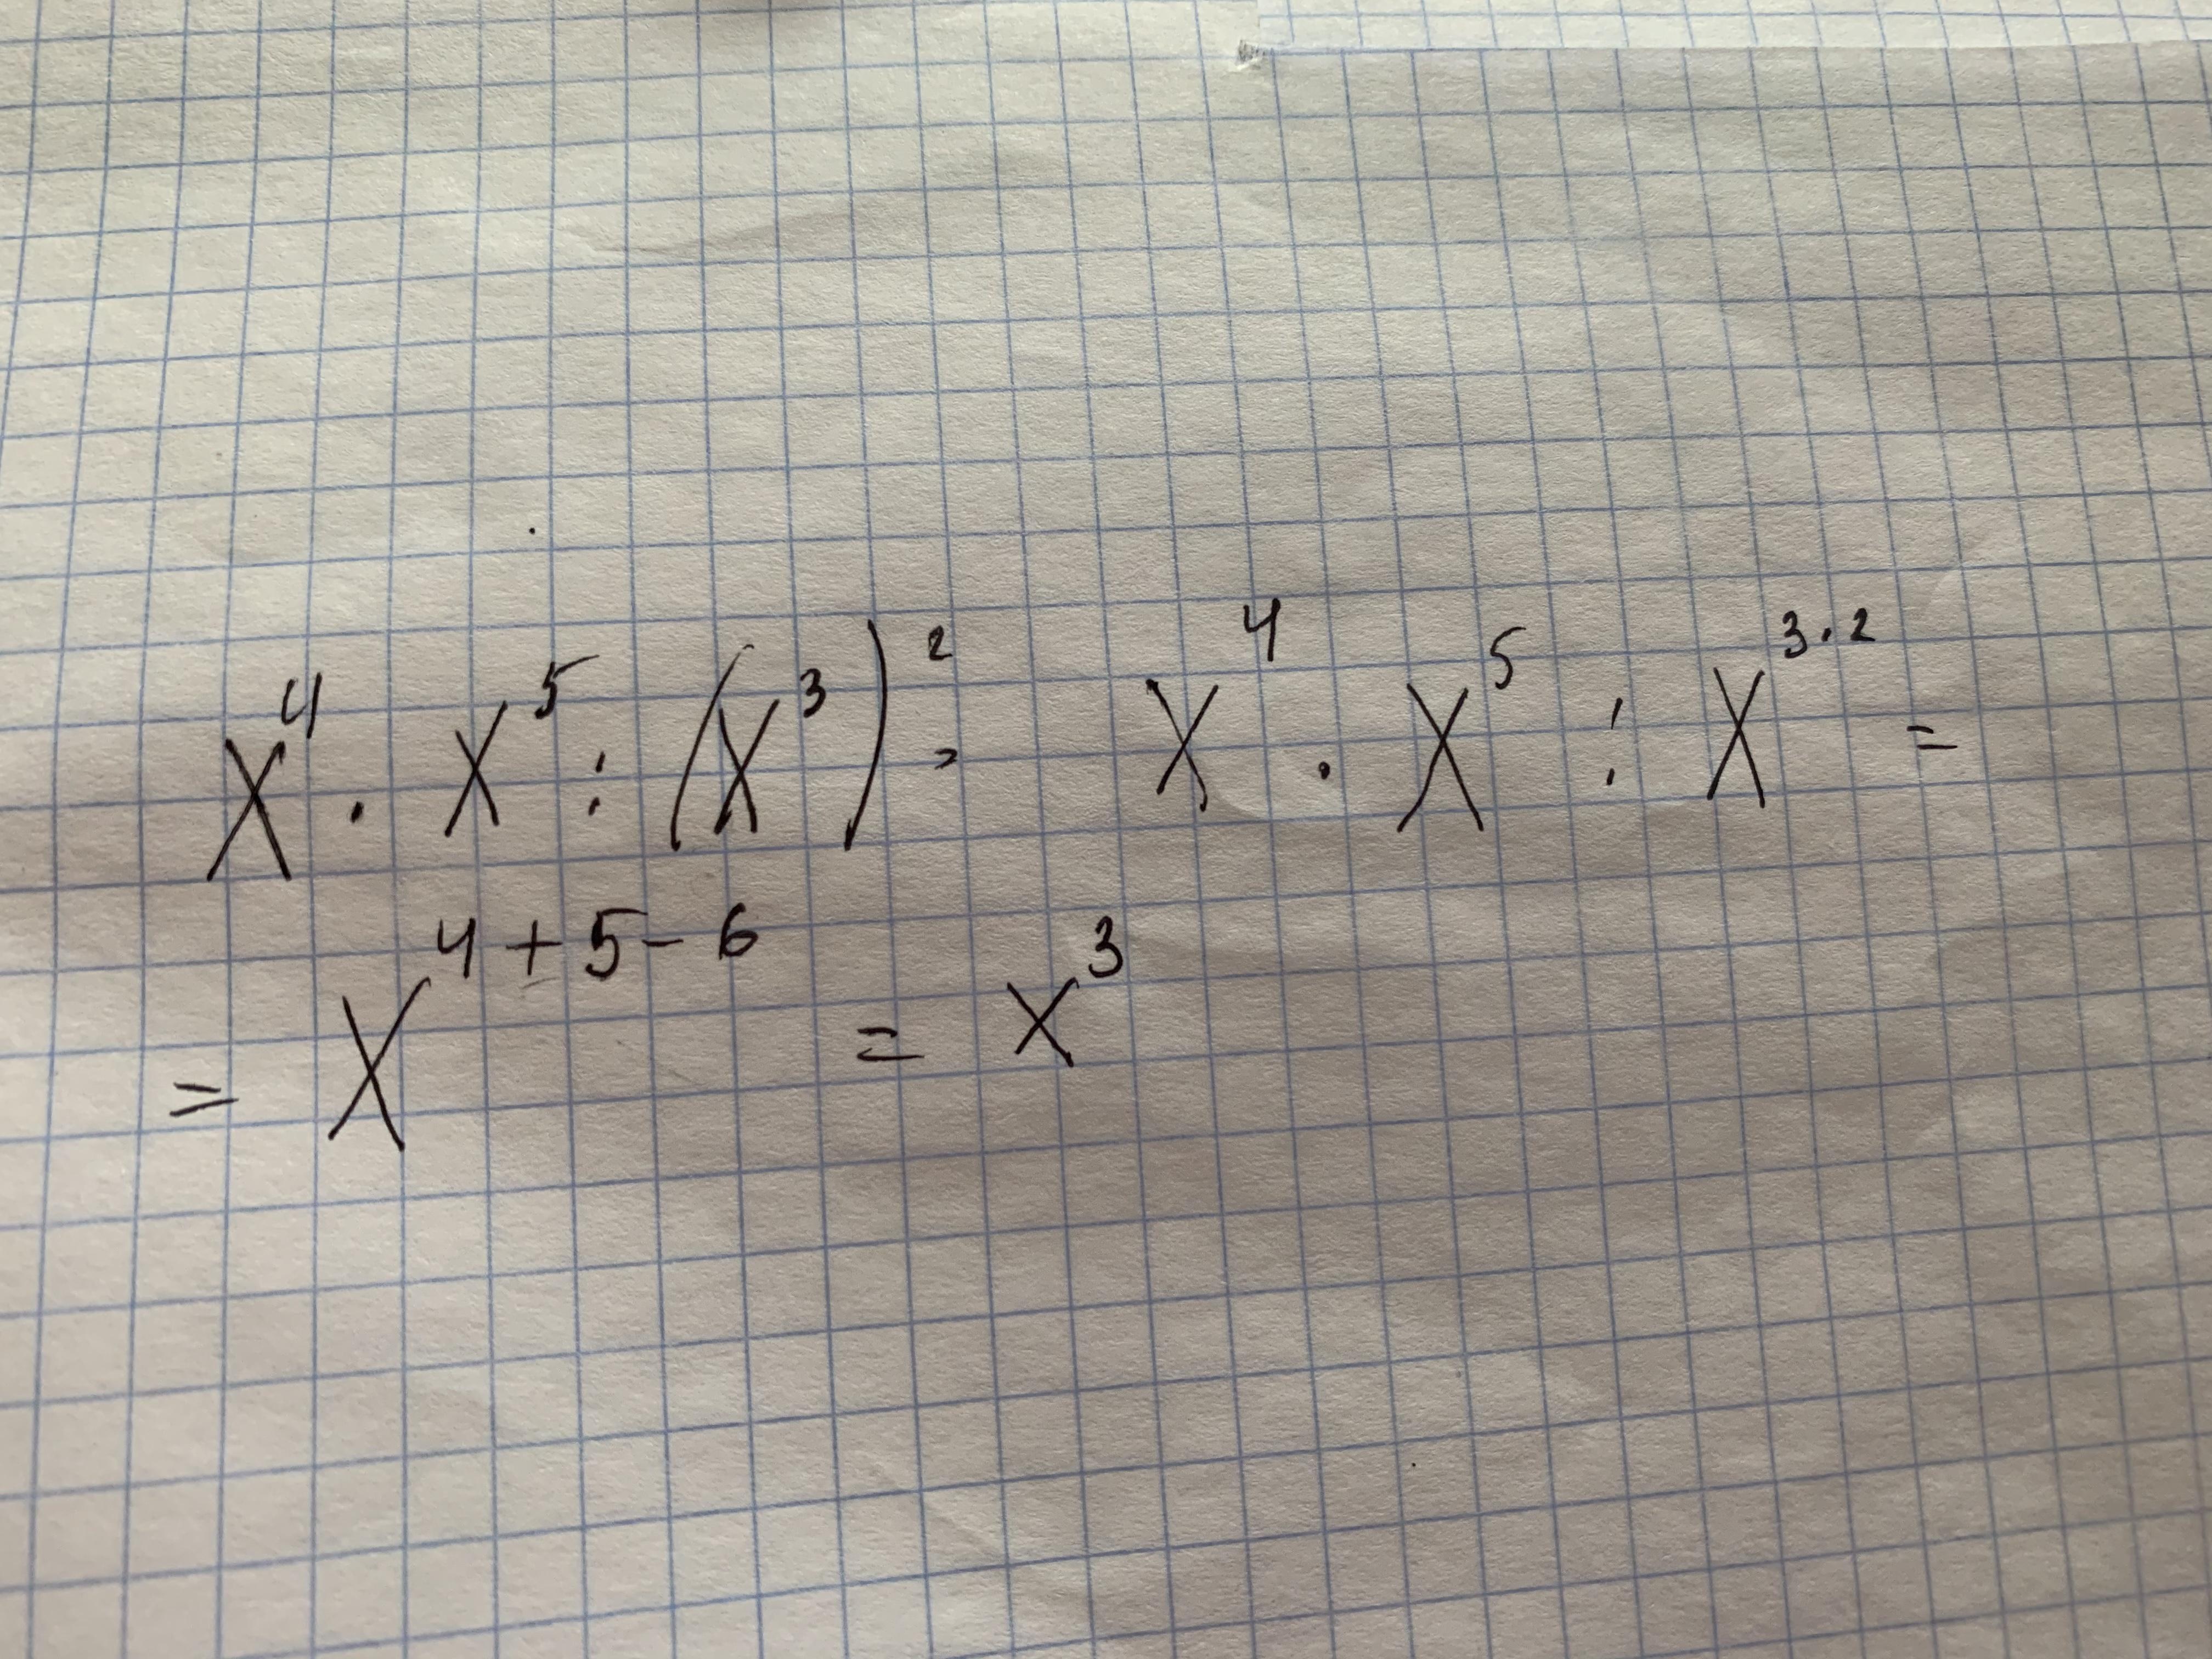 X⁴ · X⁵ : (X³)² = X⁴ · X⁵ : X³·² =
= X⁴⁺⁵⁻⁶ = X³